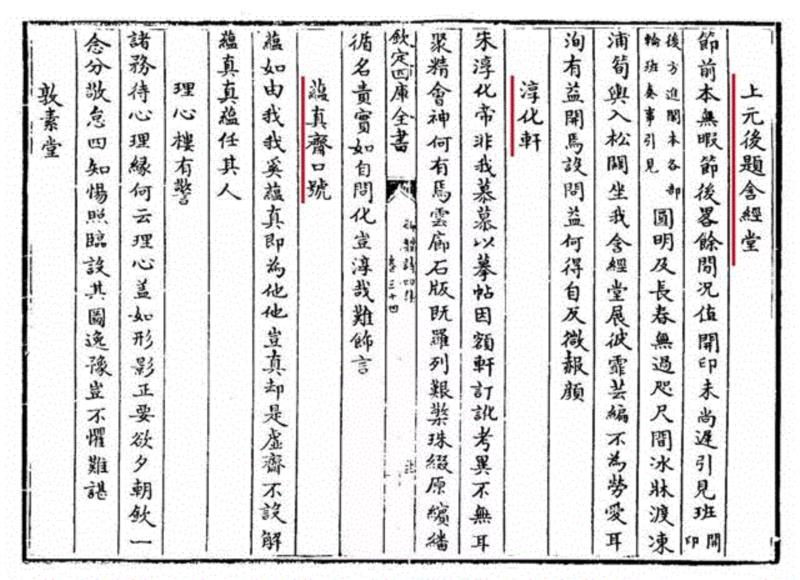 上元後題含經堂
節前本無暇節後畧餘閒况值開印未尚遲引見班開印
後方進閣本各部輪班奏事引見圓明及長春無過咫尺間冰牀渡凍
浦筍輿入松關坐我含經堂展彼霏芸編不為勞愛耳
洵有益開焉設問益何得自反微赧顔
淳化軒
朱淳化帝非我慕慕以摹帖因額軒訂訛考異不無耳
聚精會神何有焉雲廊石版既羅列艱裝珠綴原續繙
欽定四庫全書
御製詩四集
卷三十四
循名責實如自問化豈淳哉難飾言
蘊真齋口號
蘊如由我我奚蘊真即為他他豈真却是虚齋不設解
蘊真真蘊任其人
理心樓有警
諸務待心理緣何云理心盖如形影正要欲夕朝欽一
念分敬怠四知惕照臨設其圖逸豫豈不懼難諶
敦素堂